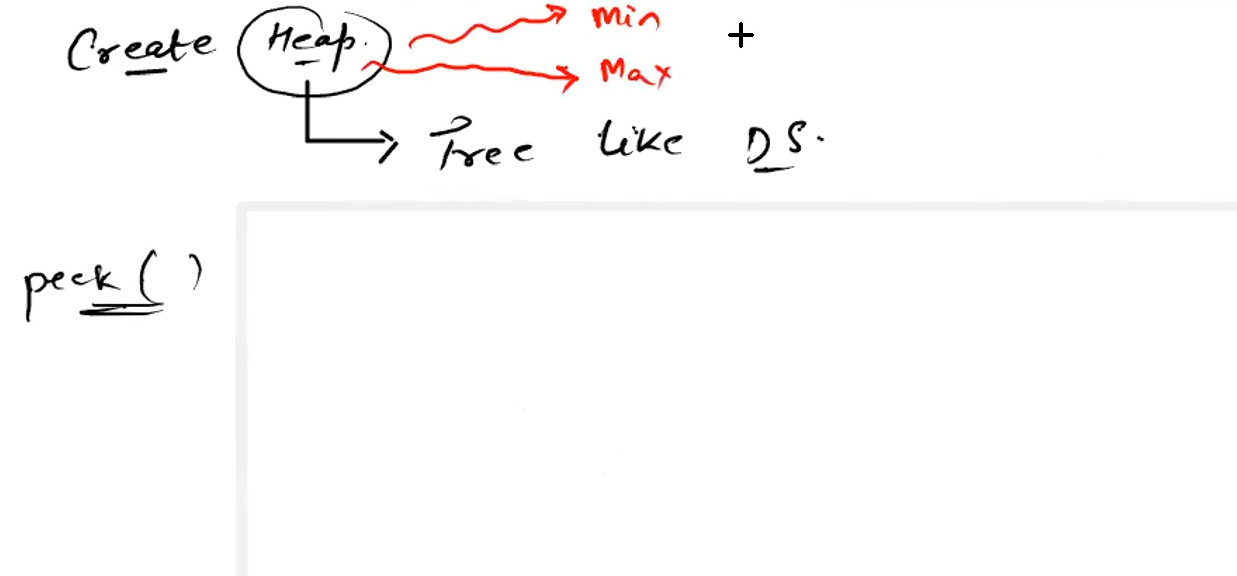 Create Heap. Min
Max
Tree like DS.
peek ( )